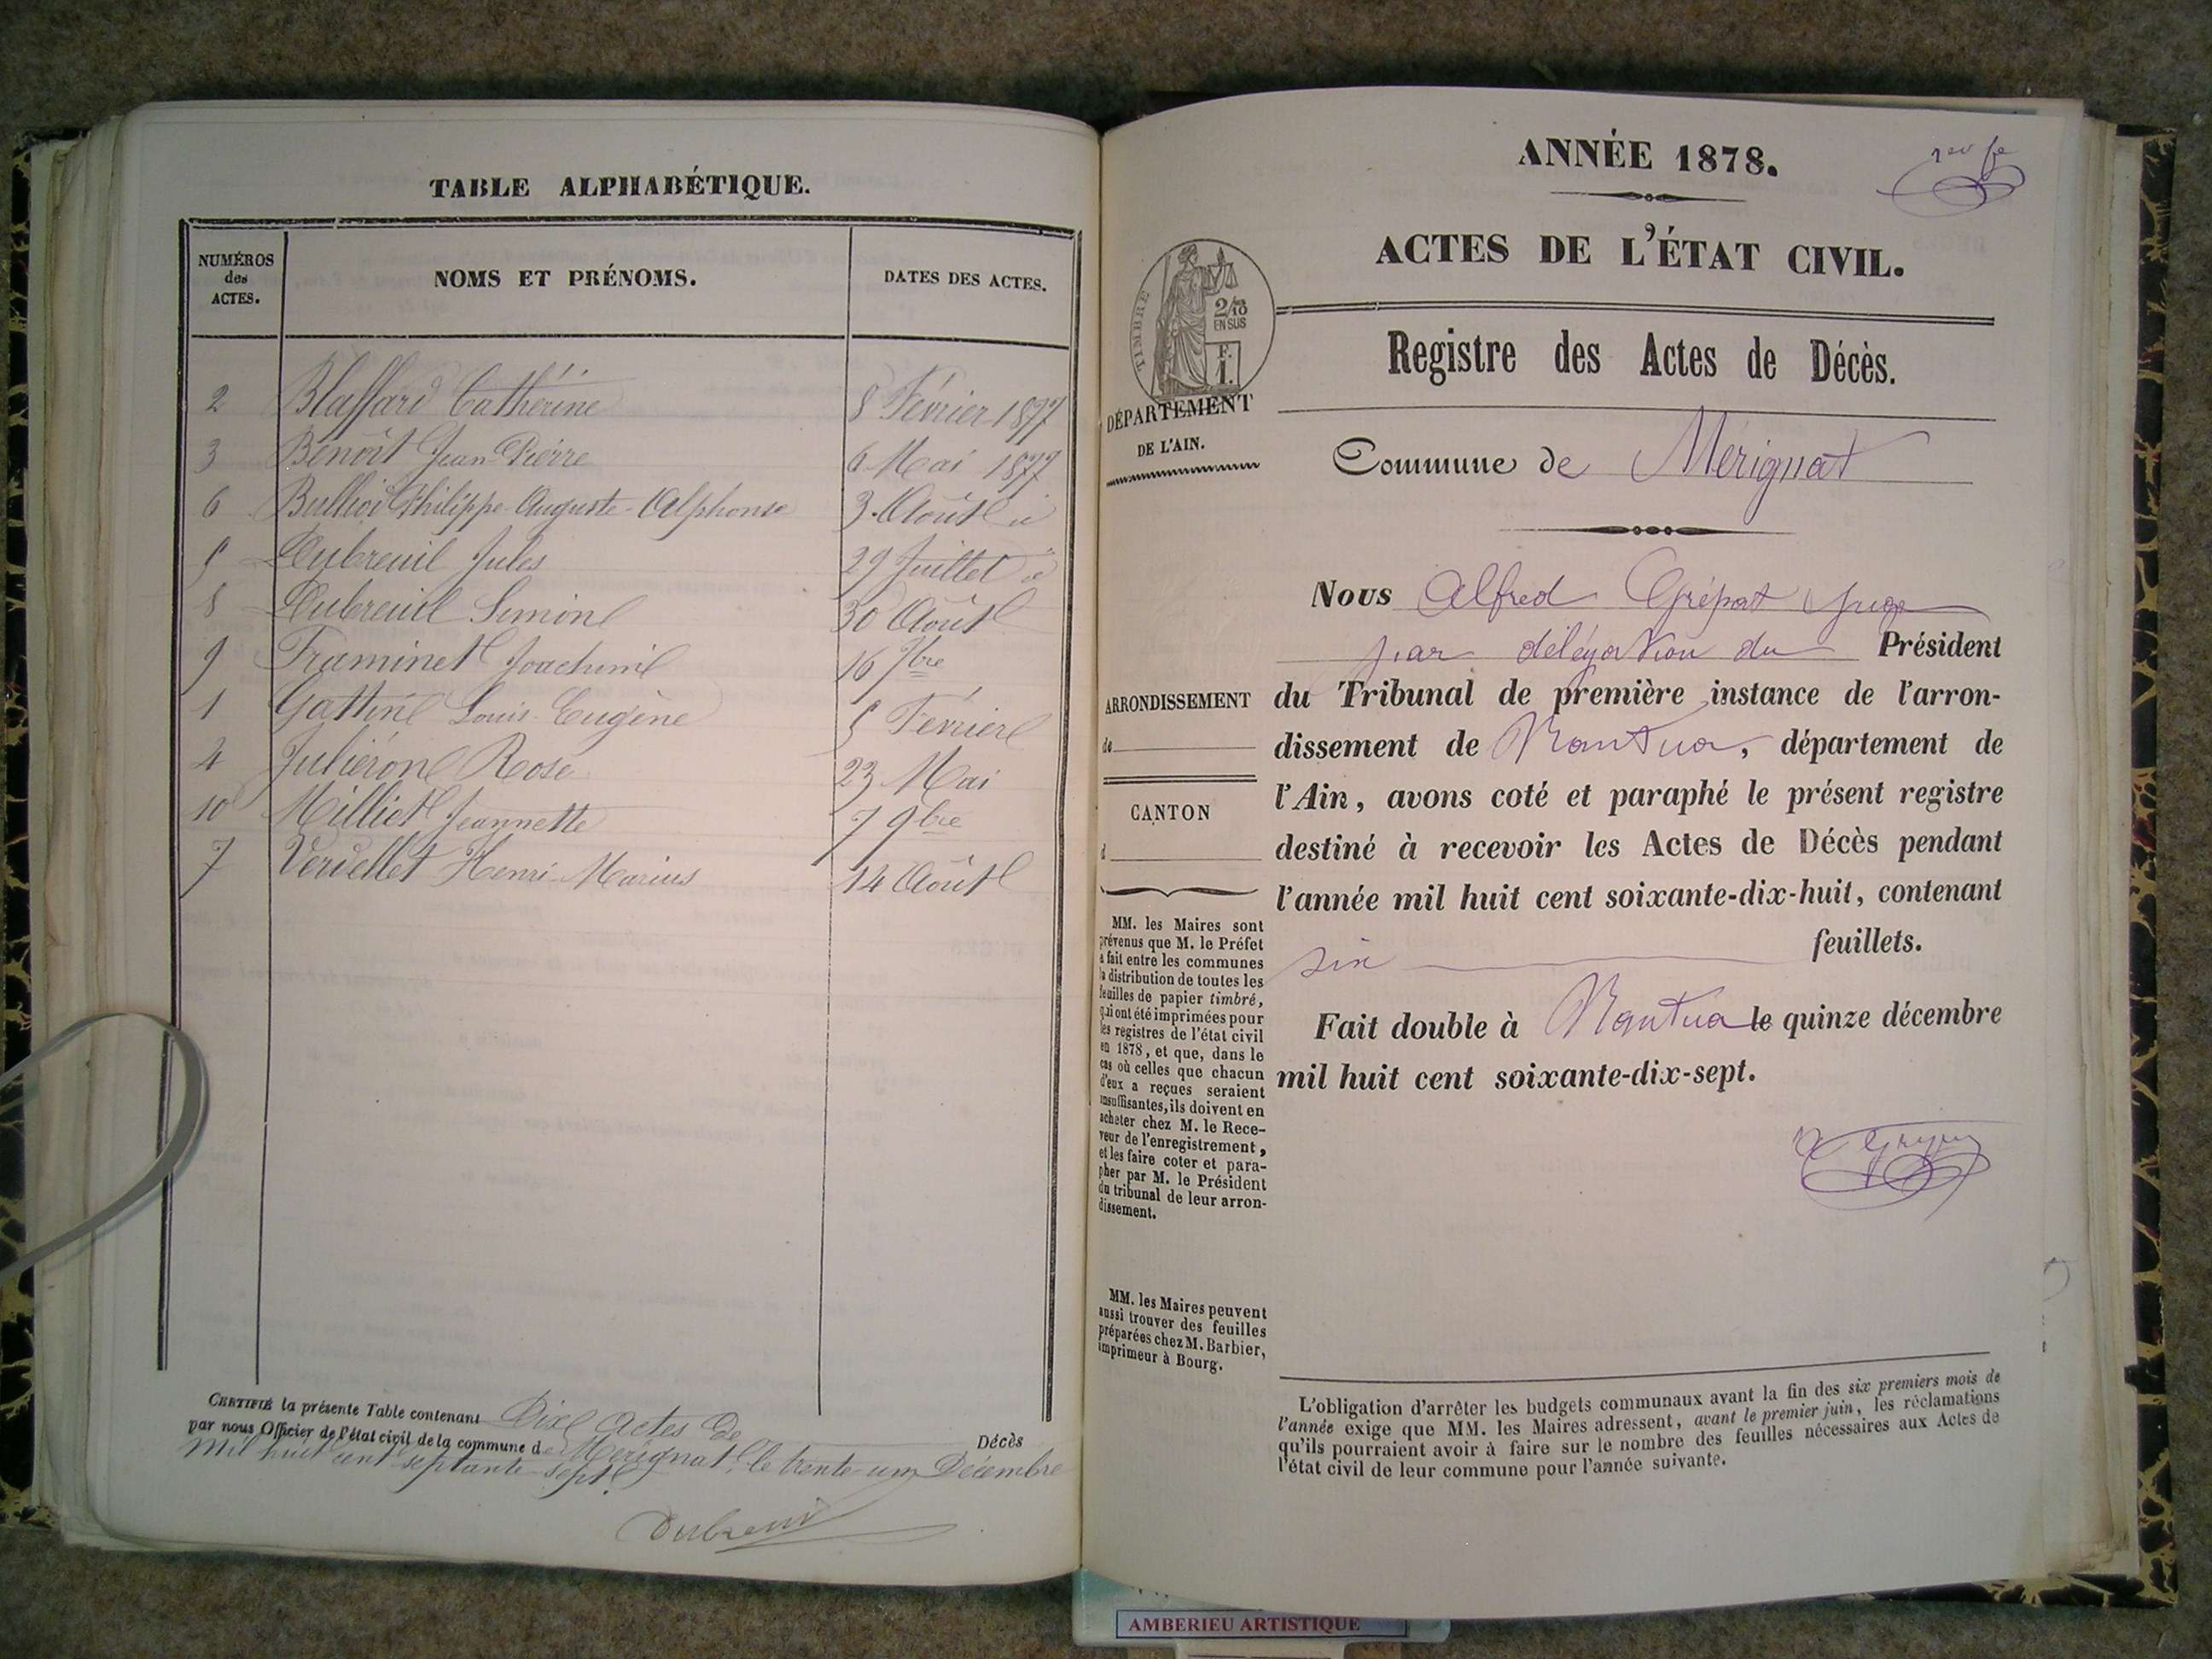 TABLE ALPHABÉTIQUE.
NUMÉROS des ACTES.
NOMS ET PRÉNOMS.
DATES DES ACTES.
2 Blaffard Cathérine 8 Février 1877
3 Benoit Jean-Pierre 6 Mai 1877
6 Bulliod Philippe-Auguste-Alphonse 3 Août id
5 Dubreuil Jules 29 Juillet id
8 Dubreuil Simon 30 Août
9 Framinet Joachim 16 7bre
1 Gottin Louis-Eugène 5 Février
4 Juliéron Rose 23 Mai
10 Milliet Jeannette 7 9bre
7 Verdellet Henri-Marius 14 Août
CERTIFIÉ la présente Table contenant Dix actes de Décès
par nous Officier de l'état civil de la commune de Mérignat, le trente-un Décembre
mil huit cent septante sept.
Dubreuil
ANNÉE 1878.
ACTES DE L'ÉTAT CIVIL.
TIMBRE
2/10
EN SUS
F.
1.
Registre des Actes de Décès.
DÉPARTEMENT
DE L'AIN.
Commune de Mérignat
Nous Alfred Grépat juge
par délégation du Président
du Tribunal de première instance de l'arron-
dissement de Nantua, département de
l'Ain, avons coté et paraphé le présent registre
destiné à recevoir les Actes de Décès pendant
l'année mil huit cent soixante-dix-huit, contenant
six feuillets.
Fait double à Nantua le quinze décembre
mil huit cent soixante-dix-sept.
ARRONDISSEMENT
de
CANTON
d
MM. les Maires sont
prévenus que M. le Préfet
a fait entre les communes
la distribution de toutes les
feuilles de papier timbré,
qui ont été imprimées pour
les registres de l'état civil
en 1878, et que, dans le
cas où celles que chacun
d'eux a reçues seraient
insuffisantes, ils doivent en
acheter chez M. le Rece-
veur de l'enregistrement,
et les faire coter et para-
pher par M. le Président
du tribunal de leur arron-
dissement.
MM. les Maires peuvent
aussi trouver des feuilles
préparées chez M. Barbier,
imprimeur à Bourg.
L'obligation d'arrêter les budgets communaux avant la fin des six premiers mois de
l'année exige que MM. les Maires adressent, avant le premier juin, les réclamations
qu'ils pourraient avoir à faire sur le nombre des feuilles nécessaires aux Actes de
l'état civil de leur commune pour l'année suivante.
AMBERIEU ARTISTIQUE